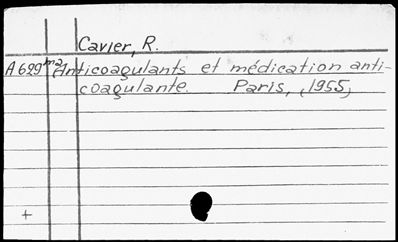 Cavier, R.
A629 ma Anticoagulants et médication anti-
coagulante. Paris, 1955,
+